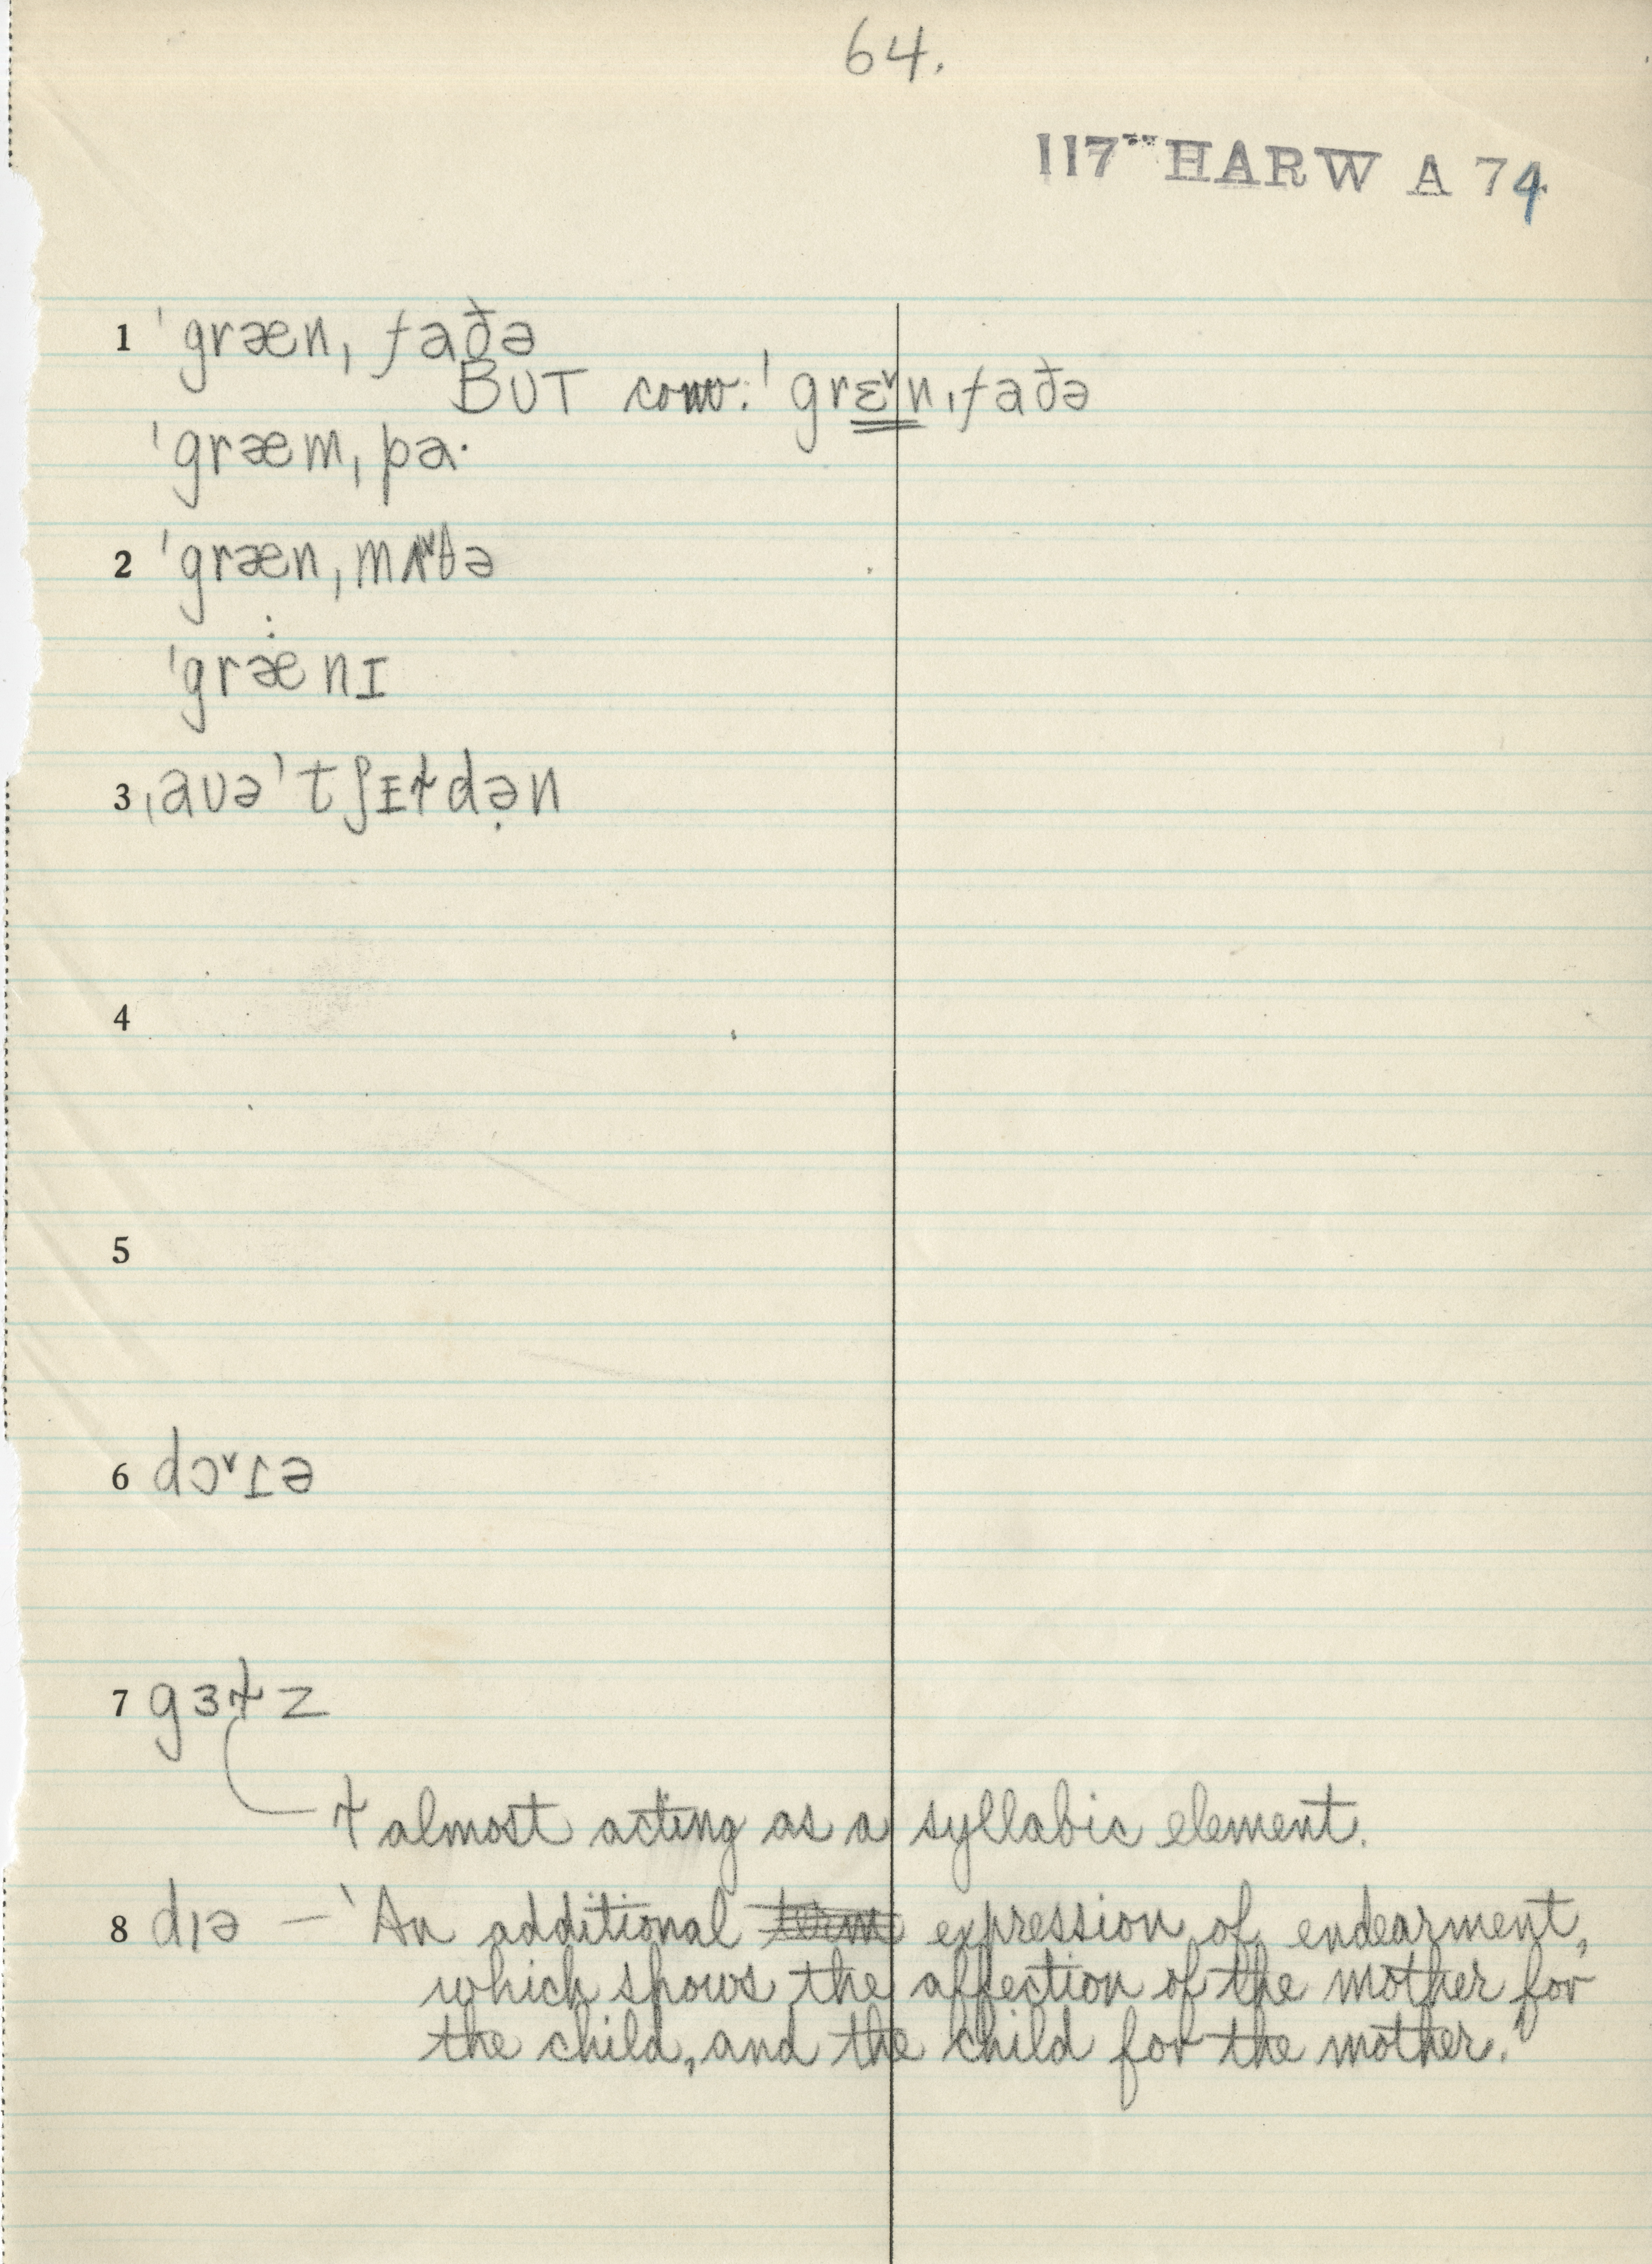 64.
117 HARW A 74
1 ˈgræn, faðə
BUT conv. ˈgrɛ˅nˌfaðə
ˈgræmˌpa·
2 ˈgrænˌmʌ˅ðə
ˈgræ:nɪ
3 ˌaʊəˈtʃɪɫdə̣n
4
5
6 dɔ˅ɪə
7 gɜɫz
ɫ almost acting as a syllabic element.
8 dɪə – 'An additional term expression of endearment,
which shows the affection of the mother for
the child, and the child for the mother.'